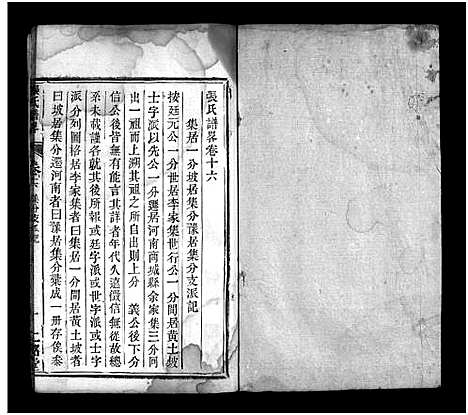 張氏譜畧卷十六
集居一分坡居集分豫居集分支派記
按廷元公一分世居李家集世行公一分間居黃土坡
士字派以先公一分遷居河南商城縣余家集三分同
出一祖而上溯其祖之所自出則上分　義公後下分
信公後皆無有能言其詳者年代久遠徵信無從故總
系未載謹就其後所報或廷字派或世字派或士字
派分列圖格居李家集者曰集居一分間居黃土坡者
曰坡居集分遷河南者曰豫居集分彙成一冊存俟叅